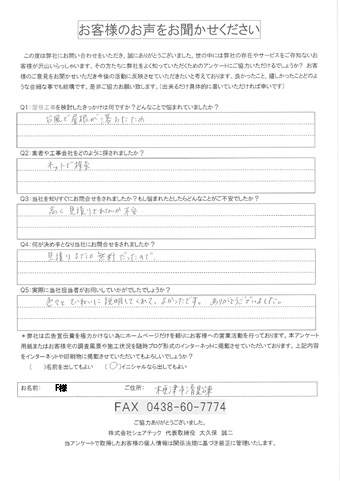 お客様のお声をお聞かせください
この度は弊社にお問い合わせをいただき、誠にありがとうございました。世の中には弊社の存在やサービスをご存知ないお
客様が沢山いらっしゃいます。その方たちに弊社をよく知っていただくためのアンケートにご協力いただけるでしょうか？ お客
様のご意見をお聞かせいただき今後の活動に反映させていただきたいと考えております。良かったこと、嬉しかったことどのよ
うな些細な事でも結構です。是非ご協力お願い致します。(出来るだけ具体的に書いていただければ幸いです)
Q1：屋根工事を検討したきっかけは何ですか？どんなことで悩まれていましたか？
台風で屋根が落ちたため
Q2：業者や工事会社をどのように探されましたか？
ネットで検索
Q3：当社を知りすぐにお問合せをされましたか？もし悩まれたとしたらどんなことがご不安でしたか？
高く見積りされないか不安
Q4：何が決め手となり当社にお問合せをされましたか？
見積りまでは無料だったので
Q5：実際に当社担当者がお伺いしていかがでしたでしょうか？
ていねいに説明してくれて、よかったです。ありがとうございました。
＊弊社は広告宣伝費を極力かけない為にホームページだけを頼りにお客様への営業活動を行っております。本アンケート
用紙またはお客様宅の調査風景や施工状況を随時ブログ形式のインターネットに掲載させていただいております。上記内容
をインターネットや印刷物に掲載させていただいてもよろしいでしょうか？
( )名前を出してもよい (○)イニシャルなら出してもよい
お名前： F様 ご住所： 木更津市清見台
FAX 0438-60-7774
ご協力ありがとうございました。
株式会社シェアテック 代表取締役 大久保 誠二
当アンケートで取得したお客様の個人情報は関係法規に基づき厳正に管理いたします。